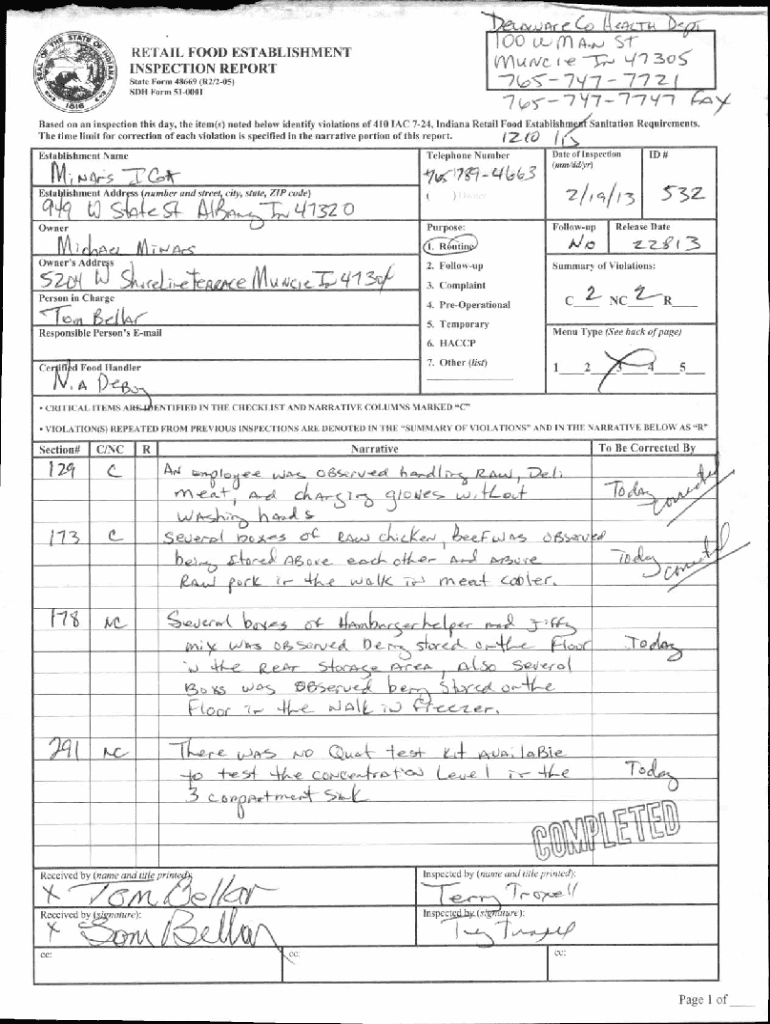 Delaware Co Health Dept
100 W Main St
Muncie In 47305
765-747-7721
765-747-7747 Fax
SEAL OF THE STATE OF INDIANA
1816
RETAIL FOOD ESTABLISHMENT
INSPECTION REPORT
State Form 48669 (R2/2-05)
SDH Form 51-0001
Based on an inspection this day, the item(s) noted below identify violations of 410 IAC 7-24, Indiana Retail Food Establishment Sanitation Requirements.
The time limit for correction of each violation is specified in the narrative portion of this report.
1210
Establishment Name
Telephone Number
Date of Inspection
(mm/dd/yr)
ID #
765 789-4663
( ) Owner
2/19/13
532
Establishment Address (number and street, city, state, ZIP code)
949 W State St Albany In 47320
Owner
Michael Minars
Purpose:
1. Routine
Follow-up
No
Release Date
22813
Owner's Address
5204 W Shoreline Terrace Muncie In 4730
2. Follow-up
3. Complaint
4. Pre-Operational
5. Temporary
6. HACCP
7. Other (list)
Summary of Violations:
C 2 NC 2 R
Person in Charge
Tom Bellar
Responsible Person's E-mail
Menu Type (See back of page)
1 2 3 4 5
Certified Food Handler
N.A
• CRITICAL ITEMS ARE IDENTIFIED IN THE CHECKLIST AND NARRATIVE COLUMNS MARKED "C"
• VIOLATION(S) REPEATED FROM PREVIOUS INSPECTIONS ARE DENOTED IN THE "SUMMARY OF VIOLATIONS" AND IN THE NARRATIVE BELOW AS "R"
Section# C/NC R Narrative To Be Corrected By
129 C An employee was observed handling Raw, Deli
meat, and changing gloves without
washing hands
Today corrected
173 C Several boxes of Raw chicken, Beef was observed
being stored above each other and above
Raw pork in the walk in meat cooler.
Today corrected
178 NC Several boxes of Hamburger helper and Jiffy
mix was observed being stored on the Floor
in the Rear Storage Area, Also Several
Boxs was observed being stored on the
Floor in the Walk in freezer.
Today
291 NC There was no Quat test kit available
to test the concentration Level in the
3 compartment Sink
Today
COMPLETED
Received by (name and title printed):
Tom Bellar
Inspected by (name and title printed):
Terry Troxell
Received by (signature):
Tom Bellar
Inspected by (signature):
Terry Troxell
cc:
cc:
cc:
Page 1 of